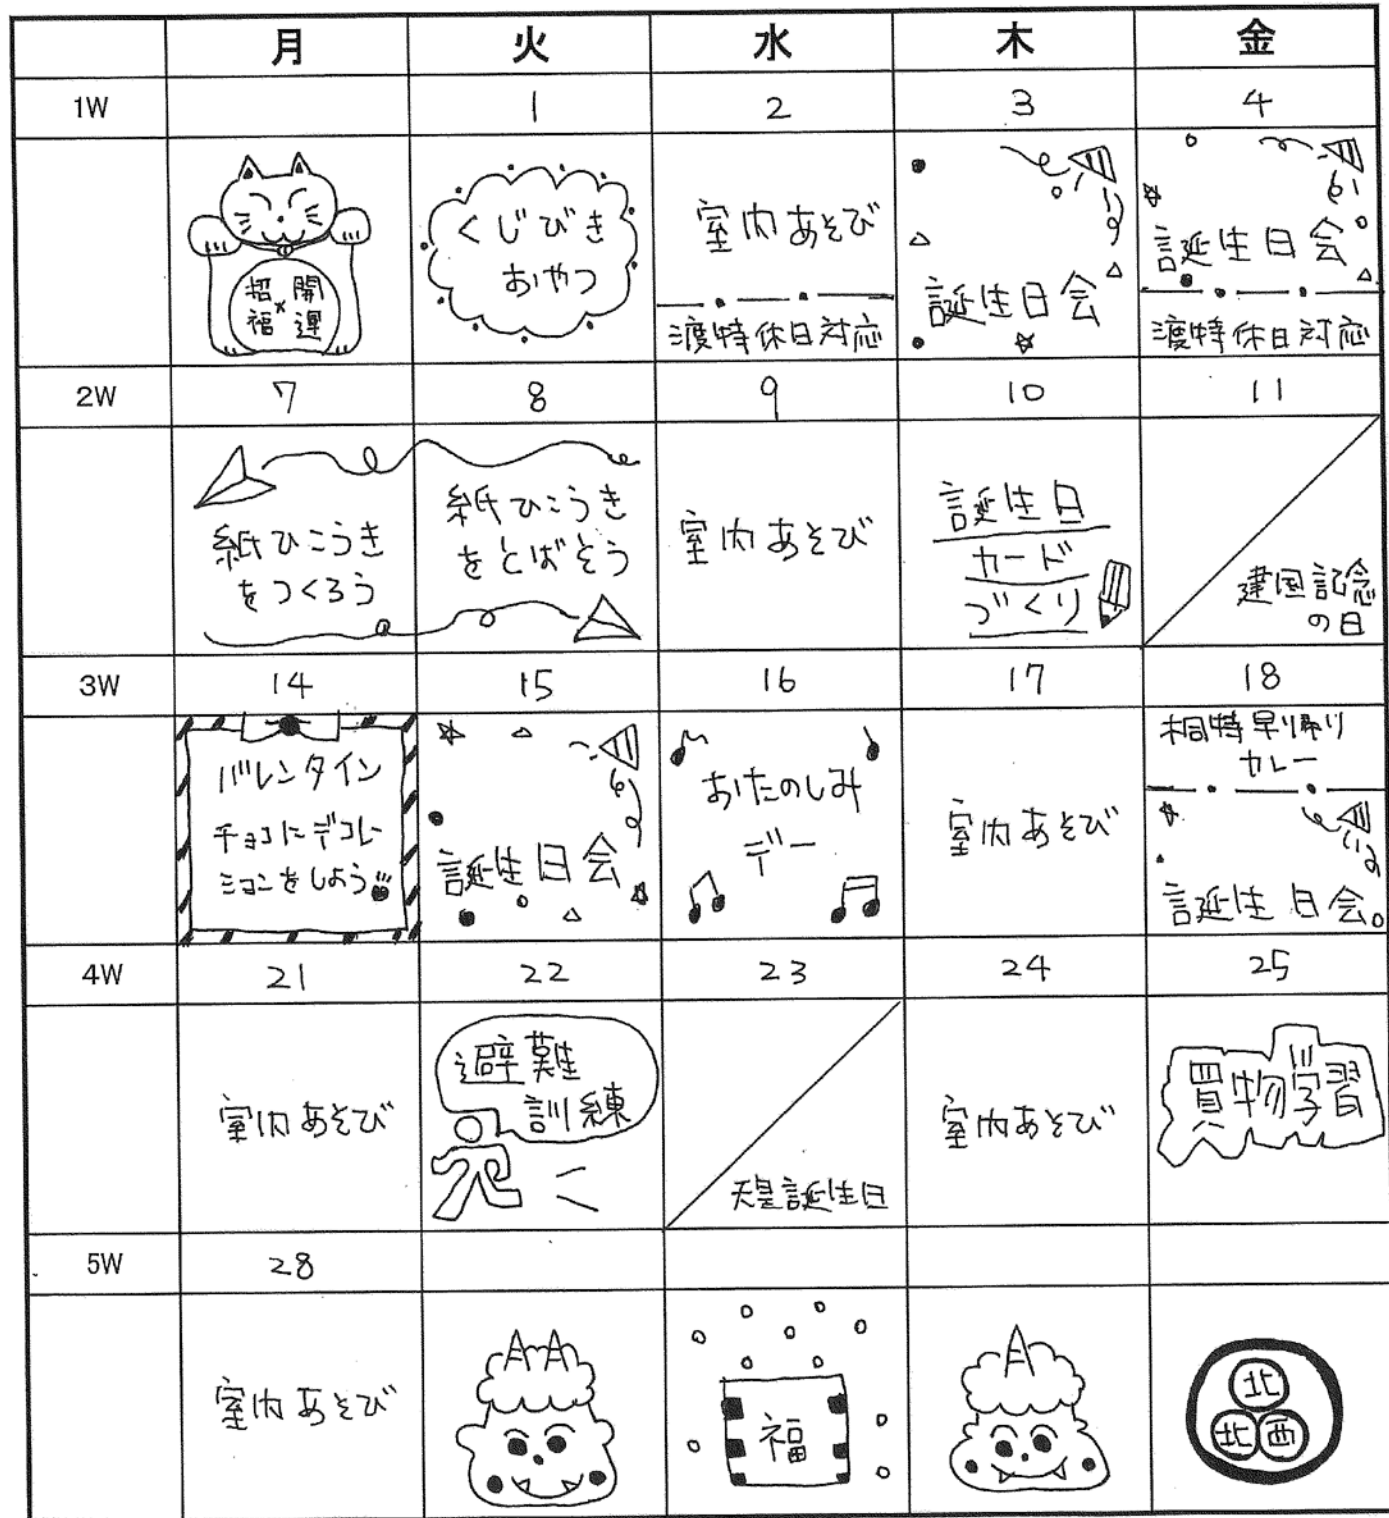 月 火 水 木 金
1W 1 2 3 4
招福×開運
くじびき
おやつ
室内あそび
渡特休日対応
誕生日会
誕生日会
渡特休日対応
2W 7 8 9 10 11
紙ひこうき
をつくろう
紙ひこうき
をとばそう
室内あそび
誕生日
カード
づくり
建国記念
の日
3W 14 15 16 17 18
バレンタイン
チョコにデコレー
ションをしよう
誕生日会
おたのしみ
デー
室内あそび
桐特早り帰り
カレー
誕生日会
4W 21 22 23 24 25
室内あそび
避難
訓練
天皇誕生日
室内あそび
買物学習
5W 28
室内あそび
福
北
北西